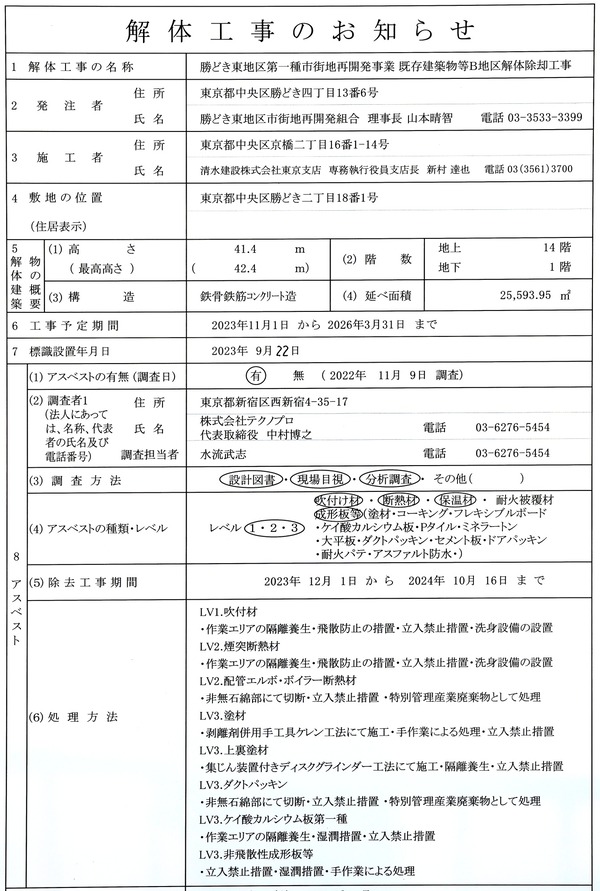 解体工事のお知らせ
1 解体工事の名称 勝どき東地区第一種市街地再開発事業 既存建築物等B地区解体除却工事
2 発注者 住所 東京都中央区勝どき四丁目13番6号
氏名 勝どき東地区市街地再開発組合 理事長 山本晴智 電話 03-3533-3399
3 施工者 住所 東京都中央区京橋二丁目16番1-14号
氏名 清水建設株式会社東京支店 専務執行役員支店長 新村 達也 電話 03(3561)3700
4 敷地の位置 東京都中央区勝どき二丁目18番1号
(住居表示)
5 解体建築物の概要
(1) 高さ 41.4 m
(最高高さ) ( 42.4 m)
(2) 階数 地上 14 階
地下 1 階
(3) 構造 鉄骨鉄筋コンクリート造 (4) 延べ面積 25,593.95 ㎡
6 工事予定期間 2023年11月1日 から 2026年3月31日 まで
7 標識設置年月日 2023年 9月22日
8 アスベスト
(1) アスベストの有無(調査日) 有 無 (2022年 11月 9日 調査)
(2) 調査者1 住所 東京都新宿区西新宿4-35-17
(法人にあっては、名称、代表者の氏名及び電話番号)
氏名 株式会社テクノプロ
代表取締役 中村博之 電話 03-6276-5454
調査担当者 水流武志 電話 03-6276-5454
(3) 調査方法 設計図書・現場目視・分析調査・その他( )
(4) アスベストの種類・レベル レベル 1・2・3
吹付け材・断熱材・保温材・耐火被覆材
成形板等(塗材・コーキング・フレキシブルボード
・ケイ酸カルシウム板・Pタイル・ミネラートン
・大平板・ダクトパッキン・セメント板・ドアパッキン
・耐火パテ・アスファルト防水・)
(5) 除去工事期間 2023年 12月 1日 から 2024年 10月 16日 まで
(6) 処理方法
LV1.吹付材
・作業エリアの隔離養生・飛散防止の措置・立入禁止措置・洗身設備の設置
LV2.煙突断熱材
・作業エリアの隔離養生・飛散防止の措置・立入禁止措置・洗身設備の設置
LV2.配管エルボ・ボイラー断熱材
・非無石綿部にて切断・立入禁止措置・特別管理産業廃棄物として処理
LV3.塗材
・剥離剤併用手工具ケレン工法にて施工・手作業による処理・立入禁止措置
LV3.上裏塗材
・集じん装置付きディスクグラインダー工法にて施工・隔離養生・立入禁止措置
LV3.ダクトパッキン
・非無石綿部にて切断・立入禁止措置・特別管理産業廃棄物として処理
LV3.ケイ酸カルシウム板第一種
・作業エリアの隔離養生・湿潤措置・立入禁止措置
LV3.非飛散性成形板等
・立入禁止措置・湿潤措置・手作業による処理